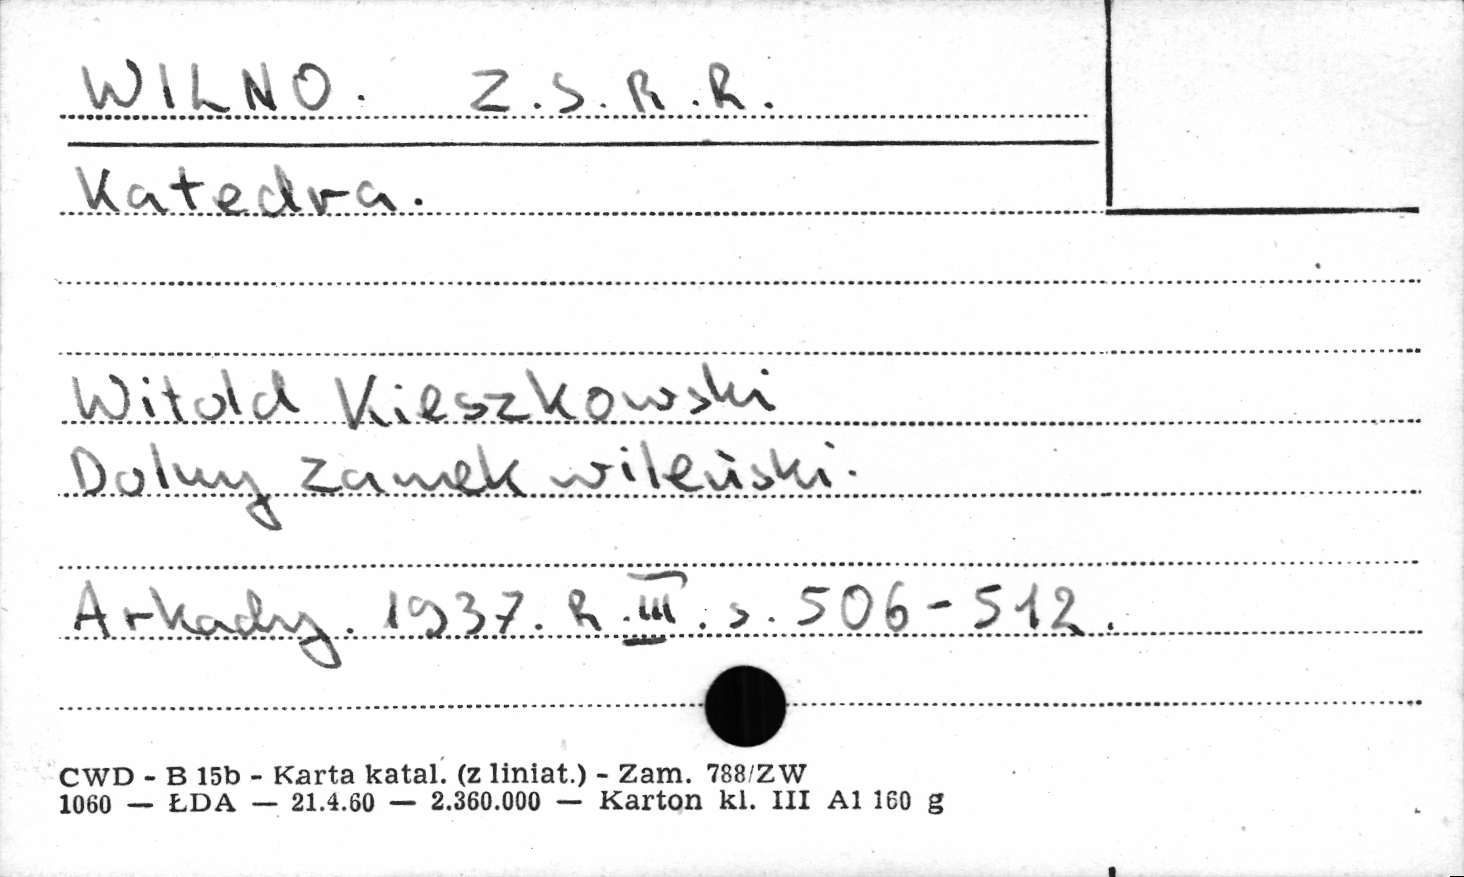 WILNO. Z.S.R.R.
Katedra.
Witold Kieszkowski
Dolny zamek wileński.
Arkady. 1937. R. III. s. 506-512.
CWD - B 15b - Karta katal. (z liniat.) - Zam. 788/ZW
1060 — ŁDA — 21.4.60 — 2.360.000 — Karton kl. III A1 160 g